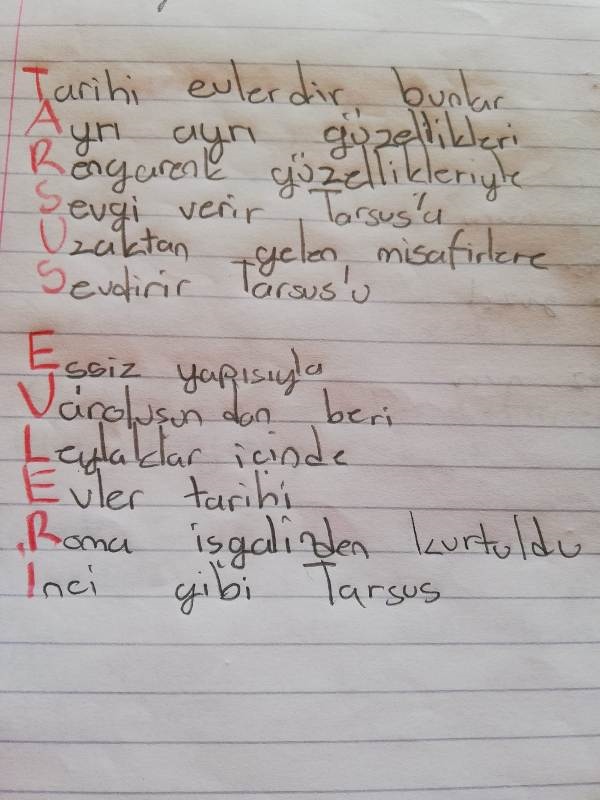 Tarihi evlerdir, bunlar
Ayrı ayrı güzellikleri
Rengarenk güzellikleriyle
Sevgi verir Tarsus'a
Uzaktan gelen misafirlere
Sevdirir Tarsus'u
Essiz yapısıyla
Varolusundan beri
Leylaklar icinde
Evler tarihi
Roma isgalinden kurtuldu
Inci gibi Tarsus